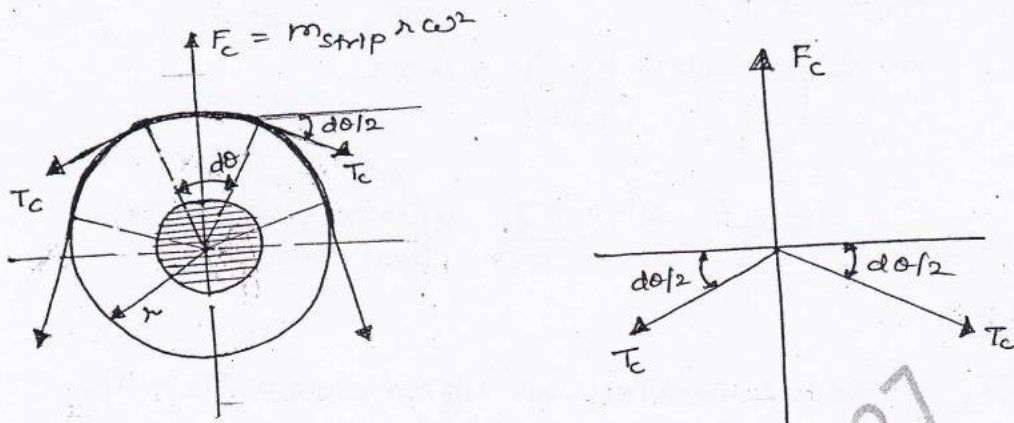 F_c = m_strip rω²
dθ/2
T_c
dθ
T_c
r
F_c
dθ/2
dθ/2
T_c
T_c